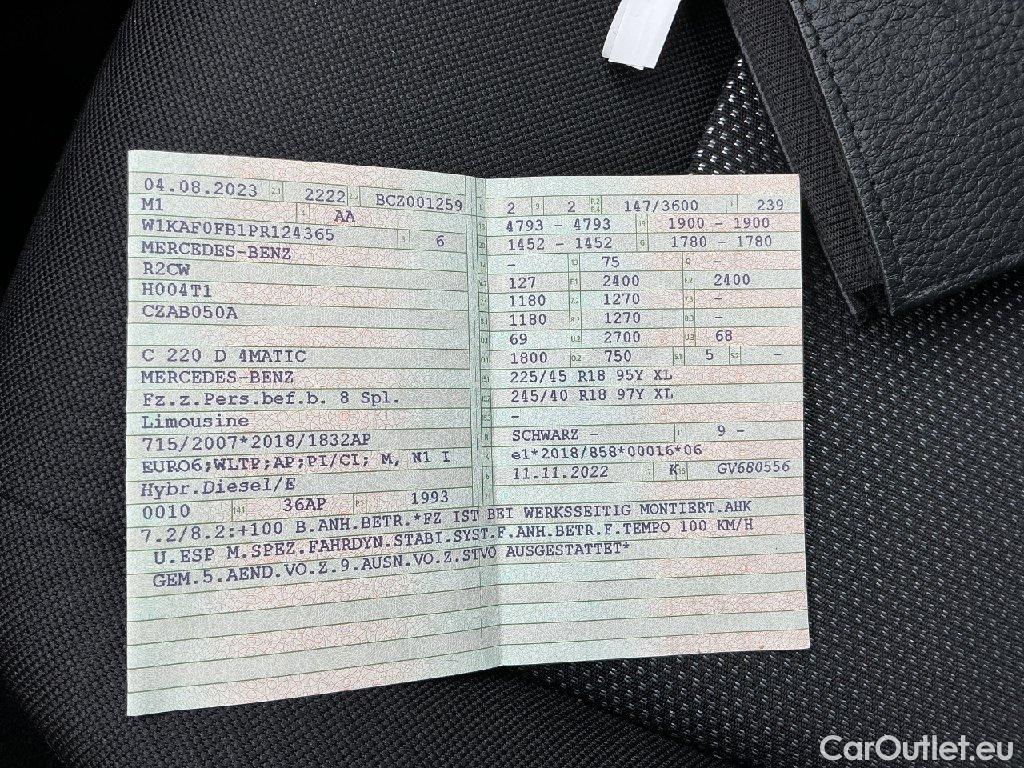 04.08.2023 2222 BCZ001259
M1 AA
W1KAF0FB1PR124365 6
MERCEDES-BENZ
R2CW
H004T1
CZAB050A
C 220 D 4MATIC
MERCEDES-BENZ
Fz.z.Pers.bef.b. 8 Spl.
Limousine
715/2007*2018/1832AP
EURO6;WLTP;AP;PI/CI; M, N1 I
Hybr.Diesel/E
0010 36AP 1993
2 2 147/3600 239
4793 - 4793 1900 - 1900
1452 - 1452 1780 - 1780
- 75 -
127 2400 2400
1180 1270 -
1180 1270 -
69 2700 68
1800 750 5 -
225/45 R18 95Y XL
245/40 R18 97Y XL
-
SCHWARZ - 9 -
e1*2018/858*00016*06
11.11.2022 K GV680556
7.2/8.2:+100 B.ANH.BETR.*FZ IST BEI WERKSSEITIG MONTIERT.AHK
U.ESP M.SPEZ.FAHRDYN.STABI.SYST.F.ANH.BETR.F.TEMPO 100 KM/H
GEM.5.AEND.VO.Z.9.AUSN.VO.Z.STVO AUSGESTATTET*
CarOutlet.eu